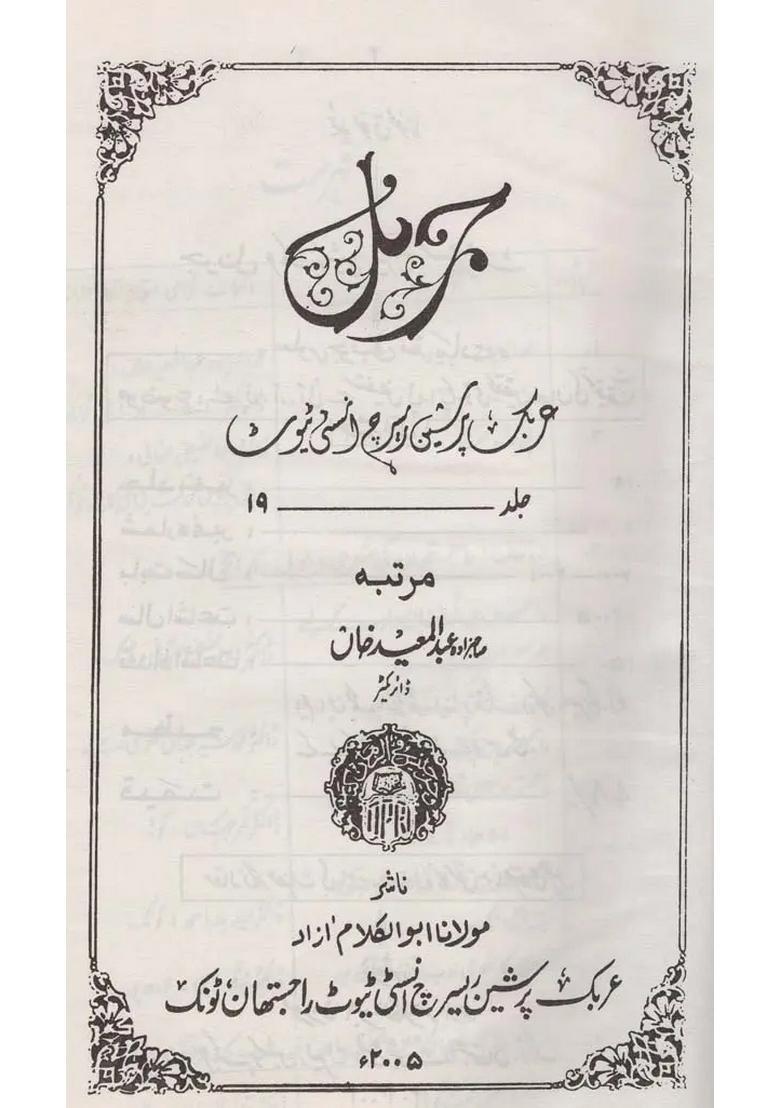 جرنل
عربک پرشین ریسرچ انسٹی ٹیوٹ
جلد ــــــــــــــــ ۱۹
مرتبہ
صاحبزادہ عبدالمعید خان
ڈائریکٹر
ناشر
مولانا ابوالکلام آزاد
عربک پرشین ریسرچ انسٹی ٹیوٹ راجستھان، ٹونک
۲۰۰۵ء